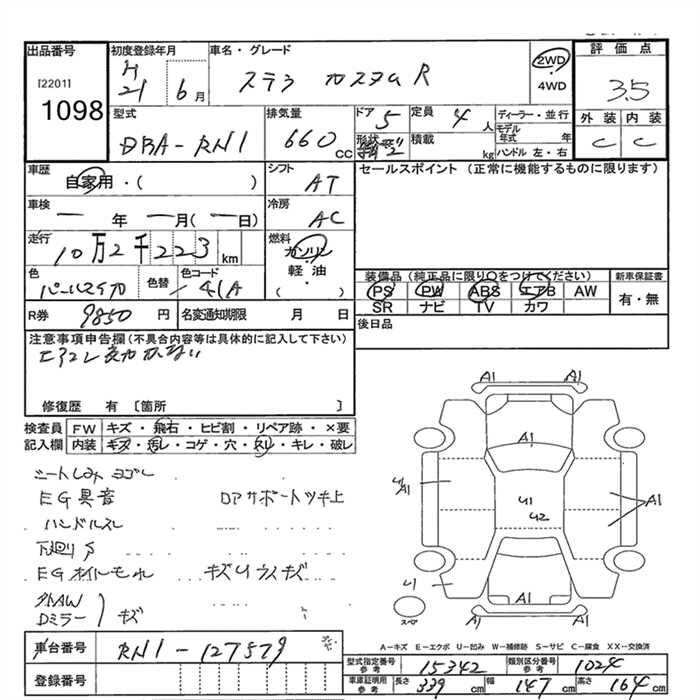 出品番号
[2201]
1098
初度登録年月
H 21 6 月
車名・グレード
ステラ カスタム R
2WD
4WD
評価点
3.5
外装 内装
C C
型式
DBA-RN1
排気量
660 CC
ドア 5
形状
定員 4 人
積載 kg
ディーラー・並行
モデル年式 年
ハンドル 左・右
車歴
自家用・( )
シフト
AT
セールスポイント (正常に機能するものに限ります)
車検
― 年 ― 月(― 日)
冷房
AC
走行
10万2千223 km
燃料
ガソリン
軽・油
( )
色
パールスイカ
色替
色コード
41A
装備品(純正品に限り○をつけてください)
PS PW ABS エアB AW
SR ナビ TV カワ
新車保証書
有・無
R券 9850 円
名変通知期限 月 日
後日品
注意事項申告欄(不具合内容等は具体的に記入して下さい)
修復歴 有 〔箇所 〕
検査員記入欄
FW キズ・飛石・ヒビ割・リペア跡・×要
内装 キズ・汚レ・コゲ・穴・スレ・キレ・破レ
シートしみ ヨゴレ
EG異音 Dアサポートツキ上
ハンドルスレ
下廻りサ
EGオイルモレ キズUウスキズ
外AW
Dミラー キズ
A1 A1
A1
U1 A1
U1
U2
A1
U1
A1
A1
スペア
A-キズ E-エクボ U-凹み W-補修跡 S-サビ C-腐食 XX-交換済
車台番号
RN1-127579
登録番号
型式指定番号 参考 15342
類別区分番号 参考 1024
車庫証明用 参考 長さ 339 cm 幅 147 cm 高さ 164 cm